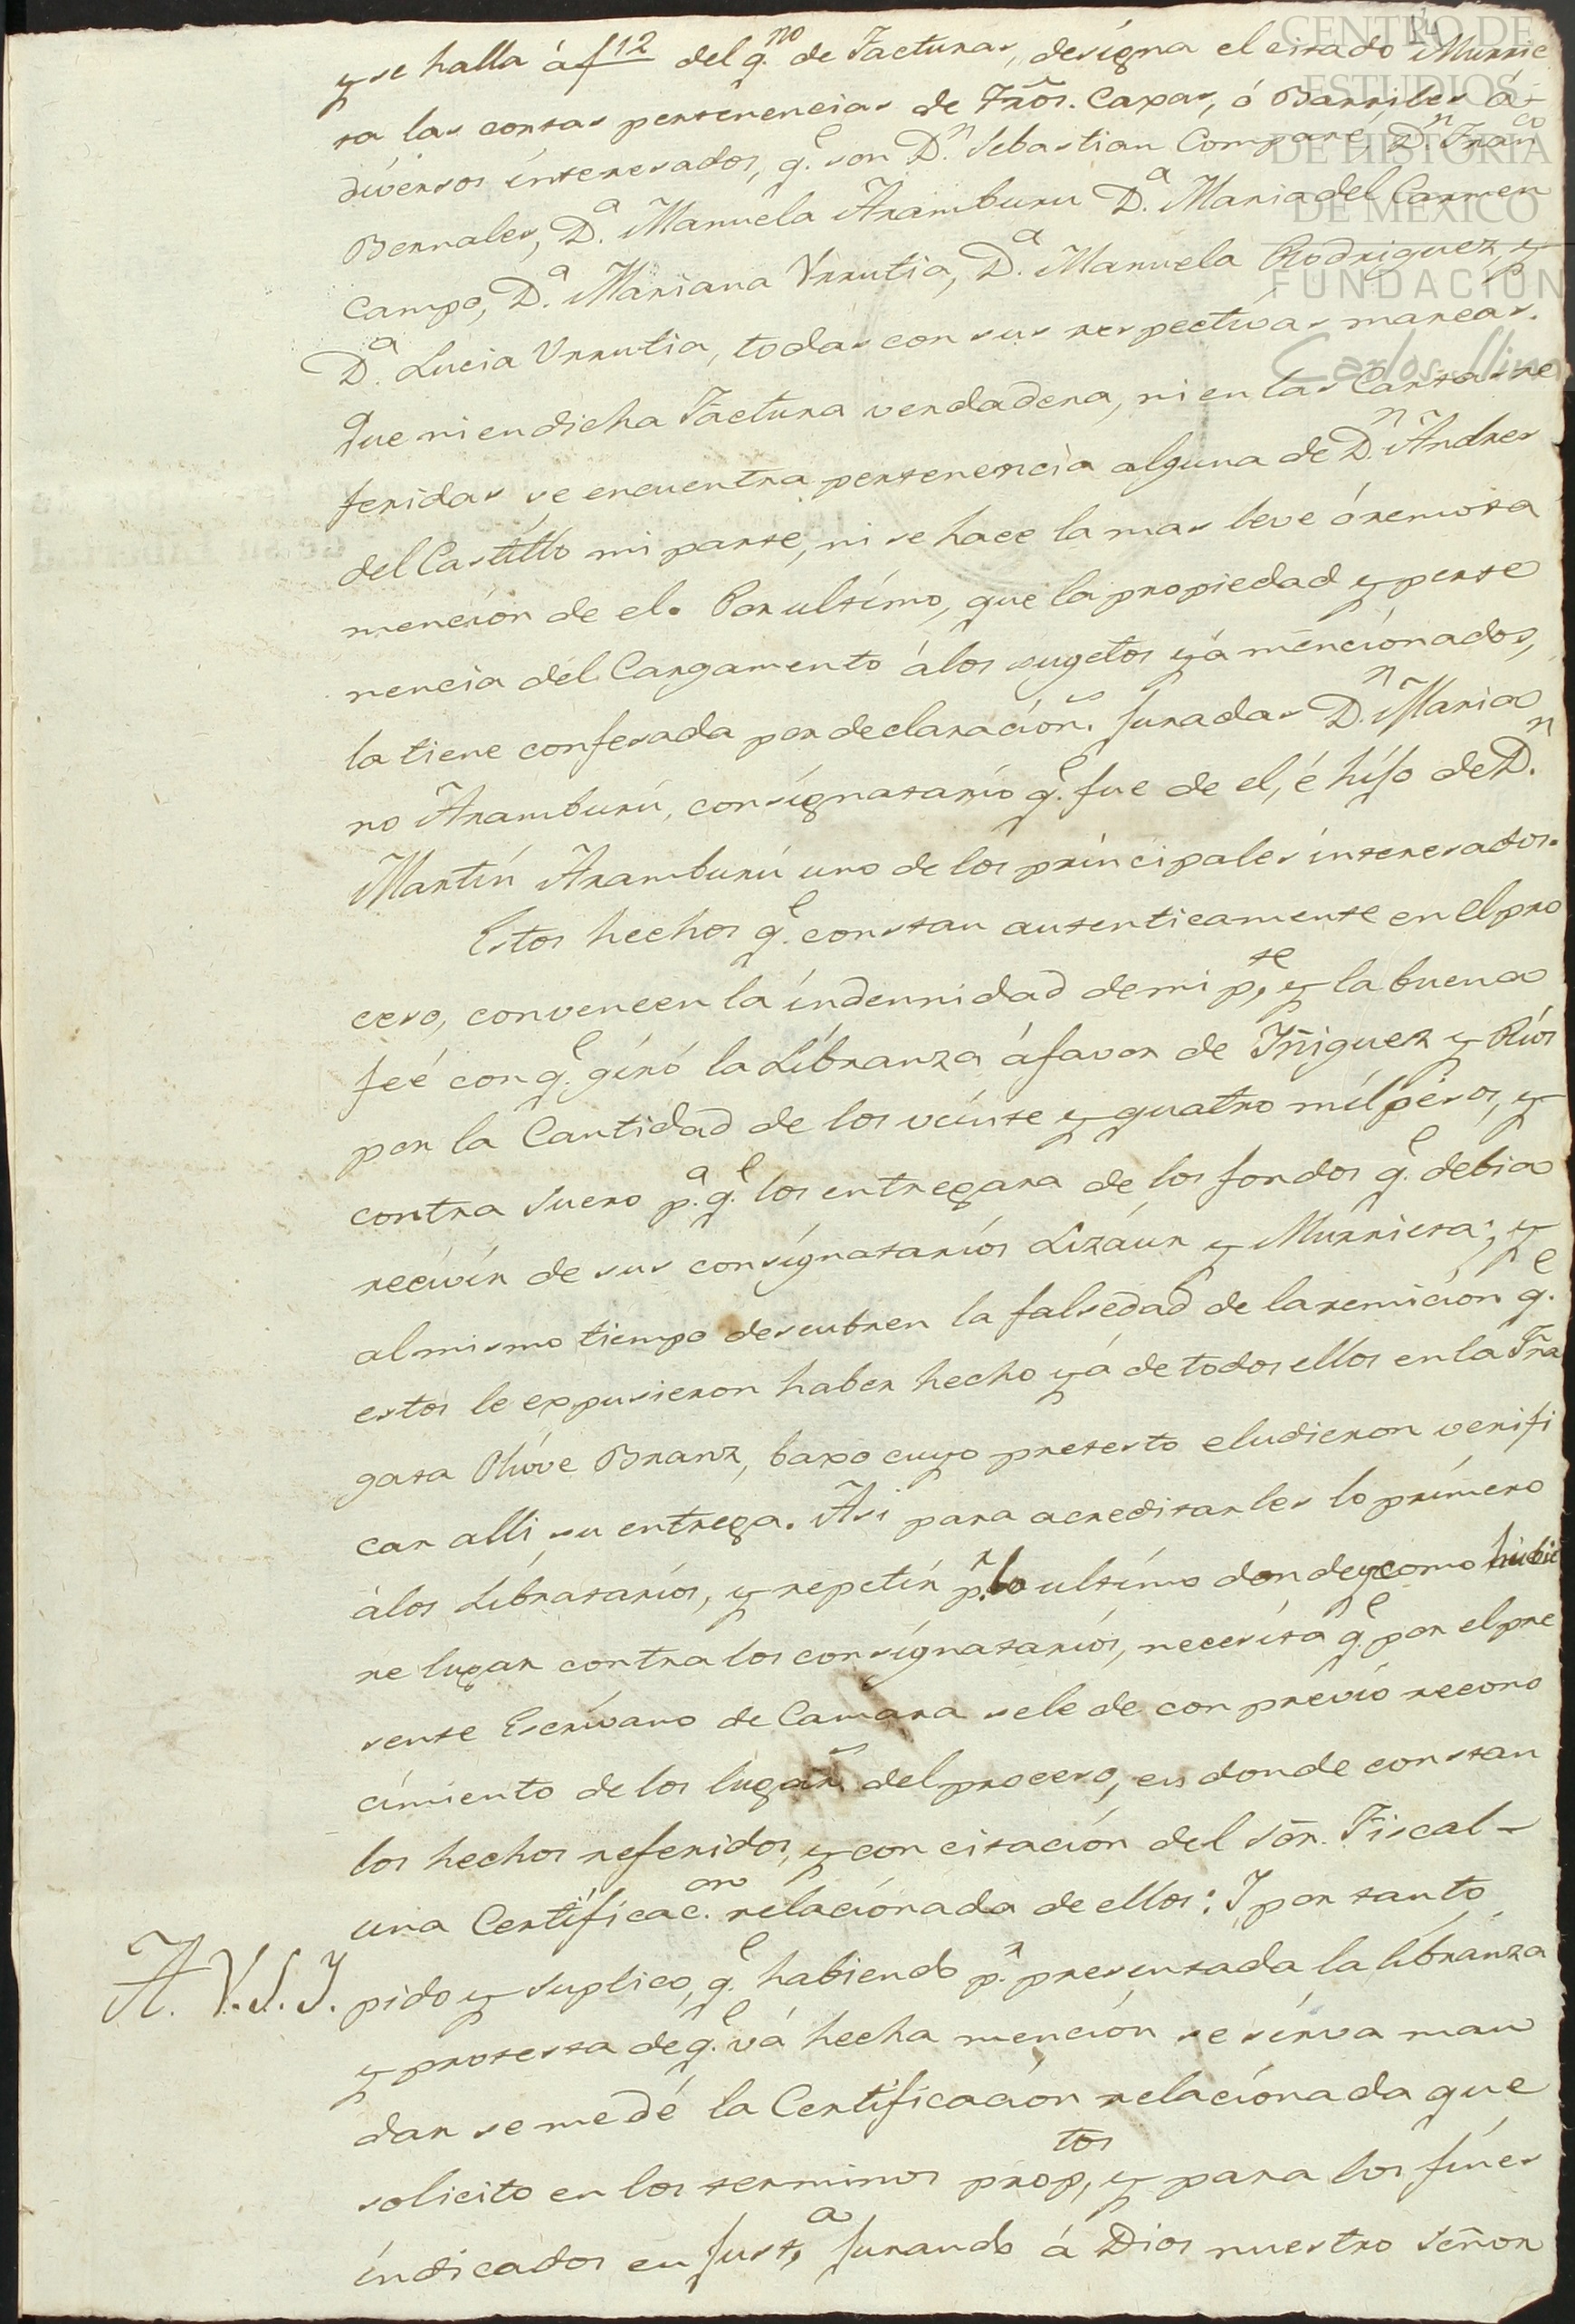 CENTRO DE
ESTUDIOS
DE HISTORIA
DE MEXICO
FUNDACIÓN
y se halla á f 12 del q.no de Facturas, designa el citado Murrie
ta las cortas pertenencias de Trõs. Caxas, ó Barriles á
diversos interesados, q.e son D.n Sebastian Comparé, D.n Fran.co
Bernales, D.a Manuela Aramburu D.a Maria del Carmen
Campo, D.a Mariana Urrutia, D.a Manuela Rodriguez, y
D.a Lucia Urrutia, todas con sus respectivas marcas.
Que ni en dicha Factura verdadera, ni en las Cartas re
feridas se encuentra pertenencia alguna de D.n Andres
del Castillo mi parte, ni se hace la mas leve ó remota
mencion de el. Por ultimo, que la propiedad y perte
nencia del Cargamento á los sugetos yá mencionados,
la tiene confesada por declaracion.s juradas D.n Maria
no Aramburú, consignatario q.e fue de el, é hijo de D.n
Martín Aramburú uno de los principales interesados.
Estos hechos q.e constan autenticamente en el pro
ceso, convencen la indemnidad de mi p.te y la buena
feé con q.e giró la Libranza á favor de Yñiguez y Ríos
por la Cantidad de los veinte y quatro mil pesos, y
contra Suero p.a q.e los entregara de los fondos q.e debia
recivir de sus consignatarios Lizáur y Murrieta; y
al mismo tiempo descubren la falsedad de la remicion q.e
estos le expusieron haber hecho yá de todos ellos en la Frã
gata Olive Branz, baxo cuyo pretesto eludieron verifi
car alli su entrega. Asi para acreditarles lo primero
á los Libratarios, y repetir p.r lo ultimo donde y como hubie
re lugar contra los consignatarios, necesita q.e por el pre
sente Escrivano de Camara se le de con previo recono
cimiento de los lugar.s del proceso, en donde constan
los hechos referidos, y con citacion del Sõr. Fiscal
una Certificac.on relacionada de ellos: Y por tanto
A. V.S.Y. pido y suplico, q.e habiendo p.r presentada la libranza
y protesta de q.e vá hecha mencion se sirva man
dar se me dé la Certificacion relacionada que
solicito en los terminos prop.tos, y para los fines
indicados en just.a jurando á Dios nuestro Señor